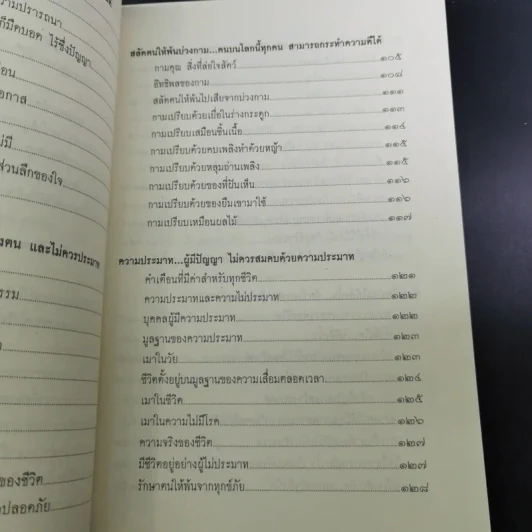 วามปรารถนา
ก็มืดบอด ไร้ซึ่งปัญญา
อกาส
ส่วนลึกของใจ
งตน และไม่ควรประมาท
รรม
ของชีวิต
าปลอดภัย
สลัดตนให้พ้นบ่วงกาม...คนบนโลกนี้ทุกคน สามารถกระทำความดีได้
กามคุณ สิ่งที่ล่อใจสัตว์ ๑๐๕
อิทธิพลของกาม ๑๐๘
สลัดตนให้พ้นไปเสียจากบ่วงกาม ๑๑๑
กามเปรียบด้วยเยื่อในร่างกระดูก ๑๑๓
กามเปรียบเสมือนชิ้นเนื้อ ๑๑๔
กามเปรียบด้วยคบเพลิงทำด้วยหญ้า ๑๑๕
กามเปรียบด้วยหลุมถ่านเพลิง ๑๑๕
กามเปรียบด้วยของที่ฝันเห็น ๑๑๖
กามเปรียบด้วยของยืมเขามาใช้ ๑๑๖
กามเปรียบเหมือนผลไม้ ๑๑๗
ความประมาท...ผู้มีปัญญา ไม่ควรสมคบด้วยความประมาท
คำเตือนที่มีค่าสำหรับทุกชีวิต ๑๒๑
ความประมาทและความไม่ประมาท ๑๒๒
บุคคลผู้มีความประมาท ๑๒๒
มูลฐานของความประมาท ๑๒๓
เมาในวัย ๑๒๓
ชีวิตตั้งอยู่บนมูลฐานของความเสื่อมตลอดเวลา ๑๒๔
เมาในชีวิต ๑๒๕
เมาในความไม่มีโรค ๑๒๖
ความจริงของชีวิต ๑๒๗
มีชีวิตอยู่อย่างผู้ไม่ประมาท ๑๒๗
รักษาตนให้พ้นจากทุกข์ภัย ๑๒๘